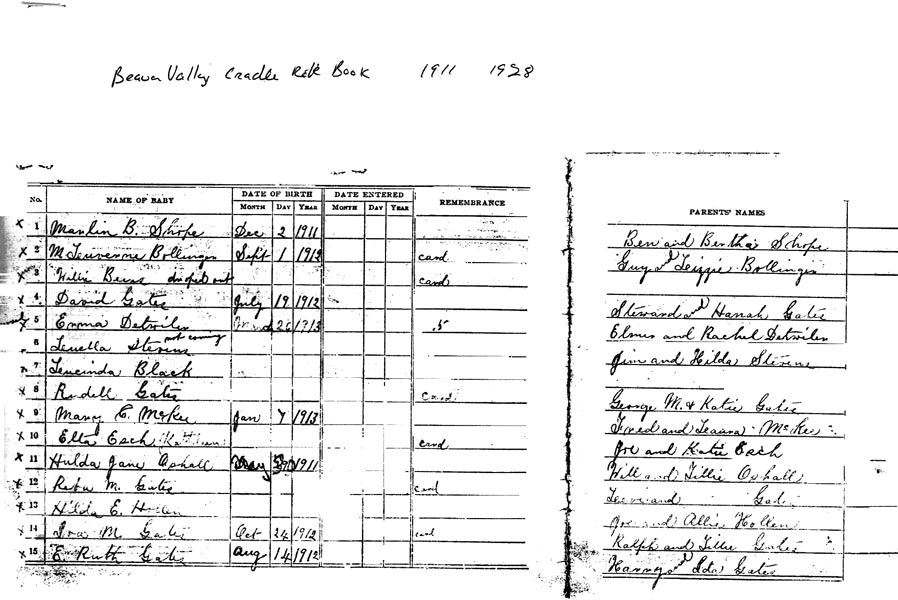 Beaver Valley Cradle Roll Book 1911 1928
No. NAME OF BABY DATE OF BIRTH DATE ENTERED REMEMBRANCE PARENTS' NAMES
MONTH DAY YEAR MONTH DAY YEAR
x 1 Marlin B. Shope Dec 2 1911 Ben and Bertha Shope
x 2 M Luverne Bollinger Sept 1 1912 card Guy and Lizzie Bollinger
x 3 Willie Beers droped out card
x 4 David Gates July 19 1912 Steward and Hanah Gates
5 Emma Detwiler 26 1913 Elmer and Rachel Detwiler
6 Luella Stevens not coming Jim and Hilda Stevens
7 Lucinda Black
x 8 Rudell Gates card George M. & Katie Gates
x 9 Mary E. McKee Jan 7 1913 Fred and Laura McKee
x 10 Ella Esch card Joe and Katie Esch
x 11 Hulda Jane Oshall May 1911 Will and Tillie Oshall
x 12 Reba M. Gates card and Gates
x 13 Hilda E. Hollen Joe and Allie Hollen
x 14 Iva M. Gates Oct 24 1912 card Ralph and Tillie Gates
x 15 E. Ruth Gates Aug 14 1912 Harry and Ida Gates